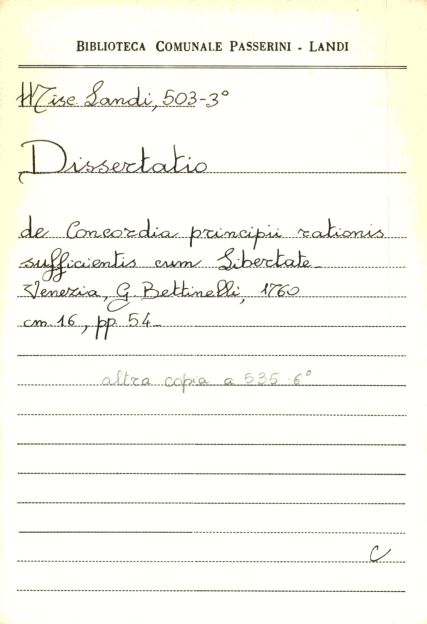 BIBLIOTECA COMUNALE PASSERINI - LANDI
Misc. Landi, 503-3°
Dissertatio
de Concordia principii rationis
sufficientis cum Libertate_
Venezia, G. Bettinelli, 1760
cm. 16, pp. 54_
altra copia a 535.6°
C